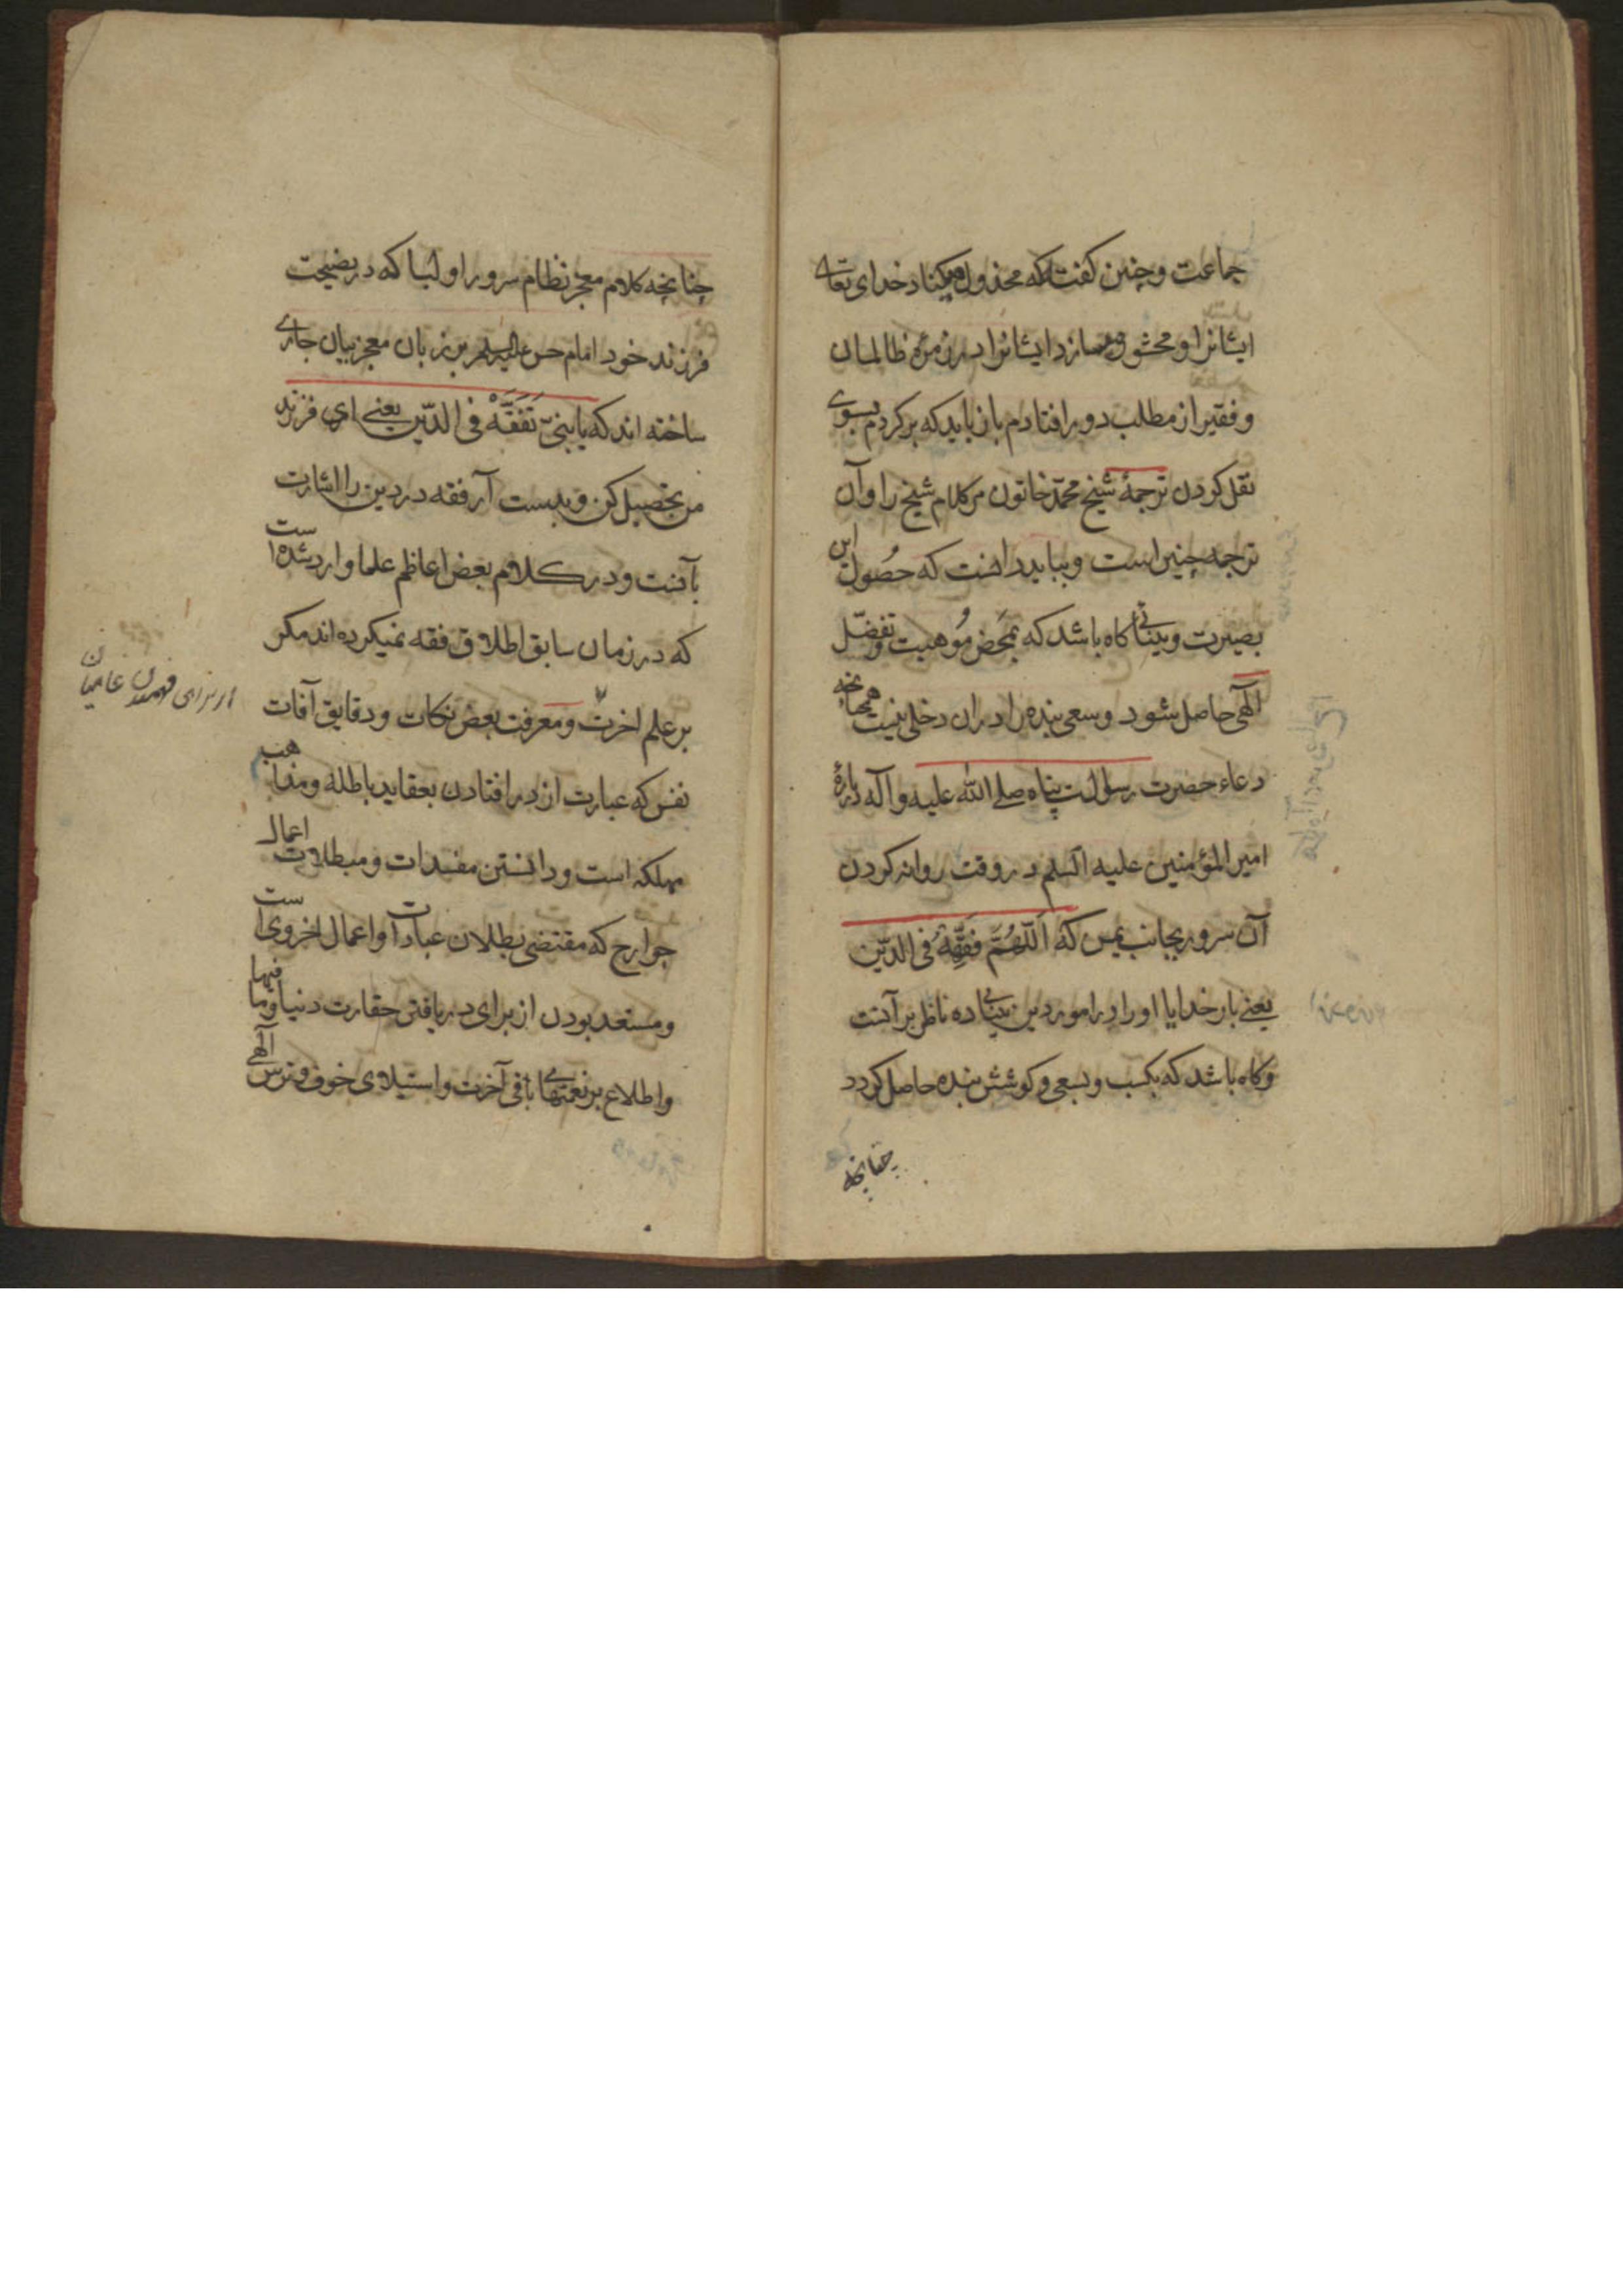 جماعت وچنین کفت که مخذول کناد خدای تعالی
ایشانرا و محشور سازد ایشانرا در زمره ظالمان
و فقیر از مطلب دور افتادم باز باید که برکردم بسوی
نقل کردن ترجمهٔ شیخ محمد خاتون مر کلام شیخ را وآن
ترجمه چنین است و بباید دانست که حصول این
بصیرت و بینائی کاه باشد که بمحض موهبت و تفضّل
آلهی حاصل شود و سعی بنده را در ان دخلی نیست همچنانچه
دعاء حضرت رسالت پناه صلی الله علیه وآله درباره
امیر المؤمنین علیه السلم در وقت روانه کردن
آن سرور بجانب یمن که اَللّهُمَّ فَقِّهْهُ فی الدّین
یعنی بار خدایا او را در امور دین بینائی ده ناظر بر آنست
وکاه باشد که بکسب و بسعی و کوشش بنده حاصل کردد
چنانچه
چنانچه کلام معجز نظام سرور اولیا که در نصیحت
فرزند خود امام حسن علیه السلم بر زبان معجز بیان جاری
ساخته اند که یابنیّ تَفَقَّهْ فی الدّین یعنی ای فرزند
من تحصیل کن و بدست آر فقه در دین را اشارت
بآنست و در کلام بعض اعاظم علما وارد شده است
که در زمان سابق اطلاق فقه نمیکرده اند مکر
بر علم اخرت و معرفت بعض نکات و دقایق آفات
نفس که عبارت از در افتادن بعقاید باطله و مذاهب
مهلکه است و دانستن مفسدات و مبطلات اعمال
جوارح که مقتضی بطلان عبادات و اعمال اخروی است
و مستعد بودن از برای دریافتن حقارت دنیا و ما فیها
و اطلاع بر نعمتهای باقی آخرت و استیلای خوف و ترس آلهی
از برای فهمیدن عامیان